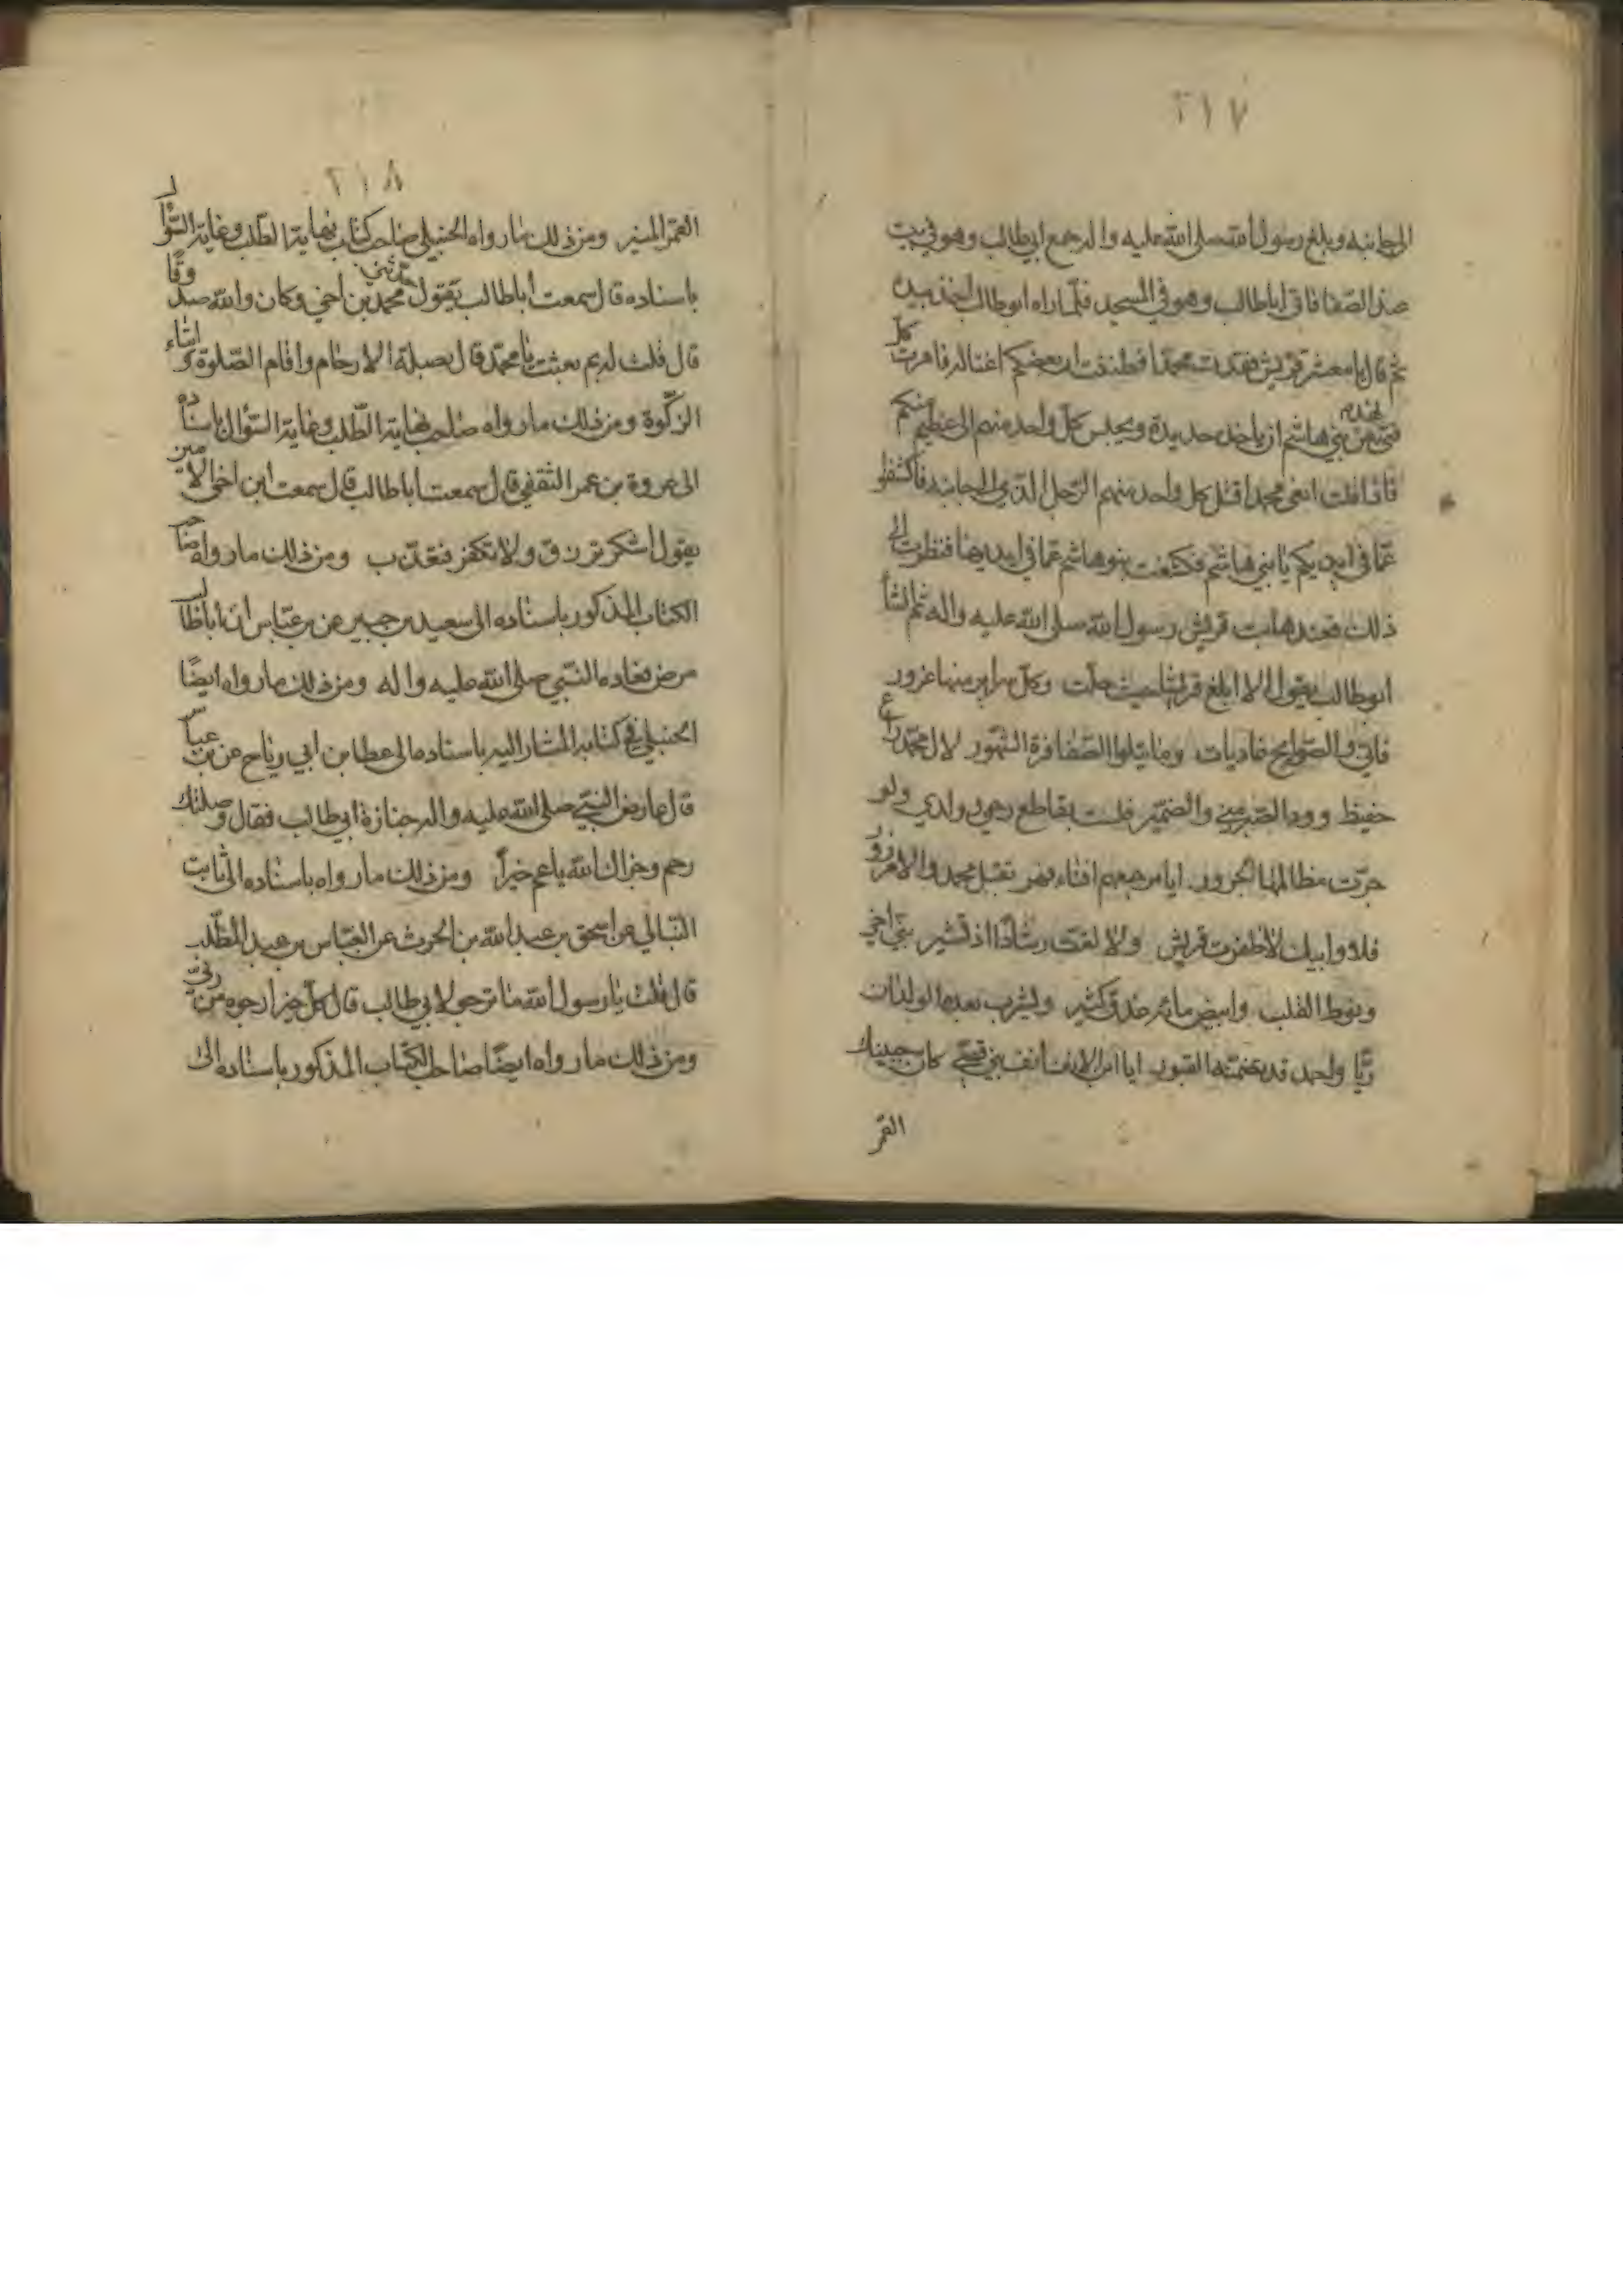 ٢١٧
الى جانبه وبلغ رسول الله صلى الله عليه واله جمع ابي طالب وهو في بيت
عند الصفا فاتى اباطالب وهو في المسجد فلما راه ابوطالب اخذ بيده
ثم قال يا معشر قريش فقدت محمدا فظننت ان بعضكم اغتاله فامرت كل
فتى شهد من بني هاشم ان ياخذ حديدة ويجلس كل واحد منهم الى عظيم منكم
فاذا قلت ابغي محمدا قتل كل واحد منهم الرجل الذي الى جانبه فاكشفوا
عما في ايديكم يا بني هاشم فكشفت بنو هاشم عما في ايديها فنظرت الى
ذلك فعندها هابت قريش رسول الله صلى الله عليه واله ثم انشا
ابوطالب يقول الا ابلغ قريشا حيث حلت وكل سراير منها غرور
فاني والضوابح غاديات وما يتلوا السفافرة الشهور لال محمد راع
حفيظ وود الصدر مني والضمير فلست بقاطع رحمي وولدي ولو
جرت مظالمها الجزور ايا من جمعهم افناء فهر لقتل محمد والامر زور
فلا وابيك لا ظفرت قريش ولا لقت رشادا اذ تشير بني اخي
ونوط القلب وابيض مائه غدق كثير ويشرب بعده الولدان
ريا واحمد قد تضمنه القبور ايا ابن الانف انف بني قصي كان جبينك
القمر
٢١٨
القمر المنير ومن ذلك ما رواه الحنبلي صاحب كتاب نهاية الطلب وغاية السؤال
باسناده قال سمعت أباطالب يقول حدثني محمد بن اخي وكان والله صدوقا
قال قلت له بم بعثت يا محمد قال بصلة الارحام واقام الصلوة وايتاء
الزكوة ومن ذلك ما رواه صاحب نهاية الطلب وغاية السؤال باسناده
الى عروة بن عمر الثقفي قال سمعت اباطالب قال سمعت ابن اخي الامين
يقول اشكر ترزق ولا تكفر فتعذب ومن ذلك ما رواه صاحب
الكتاب المذكور باسناده الى سعيد بن جبير عن بن عباس ان أباطالب
مرض فعاده النبي صلى الله عليه واله ومن ذلك ما رواه ايضا
الحنبلي في كتابه المشار اليه باسناده الى عطا بن ابي رياح عن بن عباس
قال عارض النبي صلى الله عليه واله جنازة ابي طالب فقال وصلتك
رحم وجزاك الله يا عم خيرا ومن ذلك ما رواه باسناده الى ثابت
البنالي عن اسحق بن عبد الله بن الحرث عن العباس بن عبد المطلب
قال قلت يا رسول الله ما ترجو لابي طالب قال كل خير ارجوه من ربي
ومن ذلك ما رواه ايضا صاحب الكتاب المذكور باسناده الى